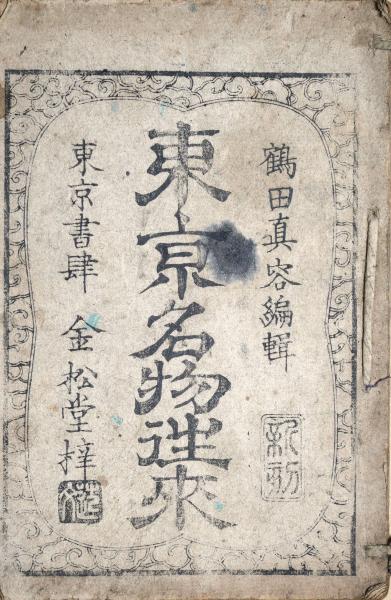 鶴田真容編輯
新刻
東京名物往來
東京書肆 金松堂梓